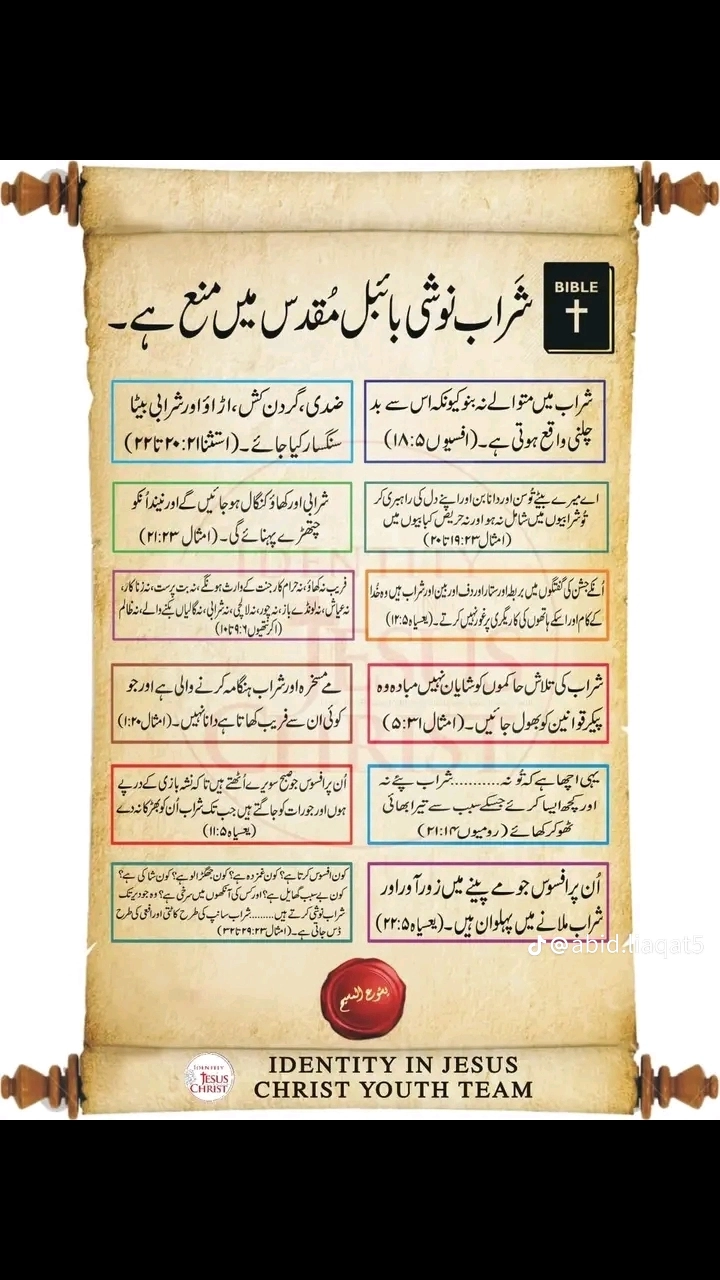 BIBLE
شَراب نوشی بائبل مُقدس میں منع ہے۔
شراب میں متوالے نہ بنو کیونکہ اس سے بد
چلنی واقع ہوتی ہے۔(افسیوں ۱۸:۵)
ضدی، گردن کش، اڑاؤ اور شرابی بیٹا
سنگسار کیا جائے۔(استثنا ۲۰:۲۱ تا ۲۲)
اے میرے بیٹے تُو سن اور دانا بن اور اپنے دل کی راہبری کر
تُو شرابیوں میں شامل نہ ہو اور نہ حریص کبابیوں میں
(امثال ۱۹:۲۳ تا ۲۰)
شرابی اور کھاؤ کنگال ہو جائیں گے اور نیند اُنکو
چتھڑے پہنائے گی۔ (امثال ۲۱:۲۳)
اُنکے جشن کی محفلوں میں بربط اور ستار اور دف اور بین اور شراب ہیں وہ خُدا
کے کام اور اسکے ہاتھوں کی کاریگری پر غور نہیں کرتے۔(یعسیاہ ۱۲:۵)
فریب نہ کھاؤ، نہ حرام کار جنت کے وارث ہونگے، نہ بت پرست، نہ زنا کار،
نہ عیاش، نہ لونڈے باز، نہ چور، نہ لالچی، نہ شرابی، نہ گالیاں بکنے والے، نہ ظالم
(۱کرنتھیوں ۹:۶ تا ۱۰)
شراب کی تلاش حاکموں کو شایان نہیں مبادہ وہ
پیکر قوانین کو بھول جائیں۔(امثال ۵:۳۱)
مے مسخرہ اور شراب ہنگامہ کرنے والی ہے اور جو
کوئی ان سے فریب کھاتا ہے دانا نہیں۔(امثال ۱:۲۰)
یہی اچھا ہے کہ تُو نہ..........شراب پئے نہ
اور کچھ ایسا کرئے جسکے سبب سے تیرا بھائی
ٹھوکر کھائے (رومیوں ۲۱:۱۴)
اُن پر افسوس جو صبح سویرے اُٹھتے ہیں تا کہ نشہ بازی کے درپے
ہوں اور جو رات کو جاگتے ہیں جب تک شراب اُن کو بھڑکا نہ دے
(یعسیاہ ۱۱:۵)
اُن پر افسوس جو مے پینے میں زور آور اور
شراب ملانے میں پہلوان ہیں۔(یعسیاہ ۲۲:۵)
کون افسوس کرتا ہے؟ کون غمزدہ ہے؟ کون جھگڑالو ہے؟ کون شاکی ہے؟
کون بے سبب گھایل ہے؟ اور کس کی آنکھوں میں سرخی ہے؟ وہ جو دیر تک
شراب نوشی کرتے ہیں.........شراب سانپ کی طرح کاٹتی اور افعی کی طرح
ڈس جاتی ہے۔(امثال ۲۹:۲۳ تا ۳۲)
@abid.liaqat5
یسوع المسیح
IDENTITY
JESUS
CHRIST
IDENTITY IN JESUS
CHRIST YOUTH TEAM